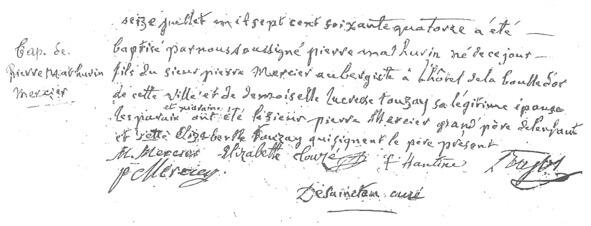 seize juillet mil sept cent soixante quatorze a été
Bap. de
Pierre Mathurin
Mercier
baptisé par nous soussigné pierre mathurin né de ce jour
fils du sieur pierre Mercier aubergiste à L'hôtel de la boulle d'or
de cette ville et de demoiselle Lucresse touzay sa légitime épouse
et maraine
les parain ont été le sieur pierre Mercier grand père de l'enfant
et Elizabethe touzay qui signent le père présent
M. Mercier Elizabette
p Mercier
Desainctan curé